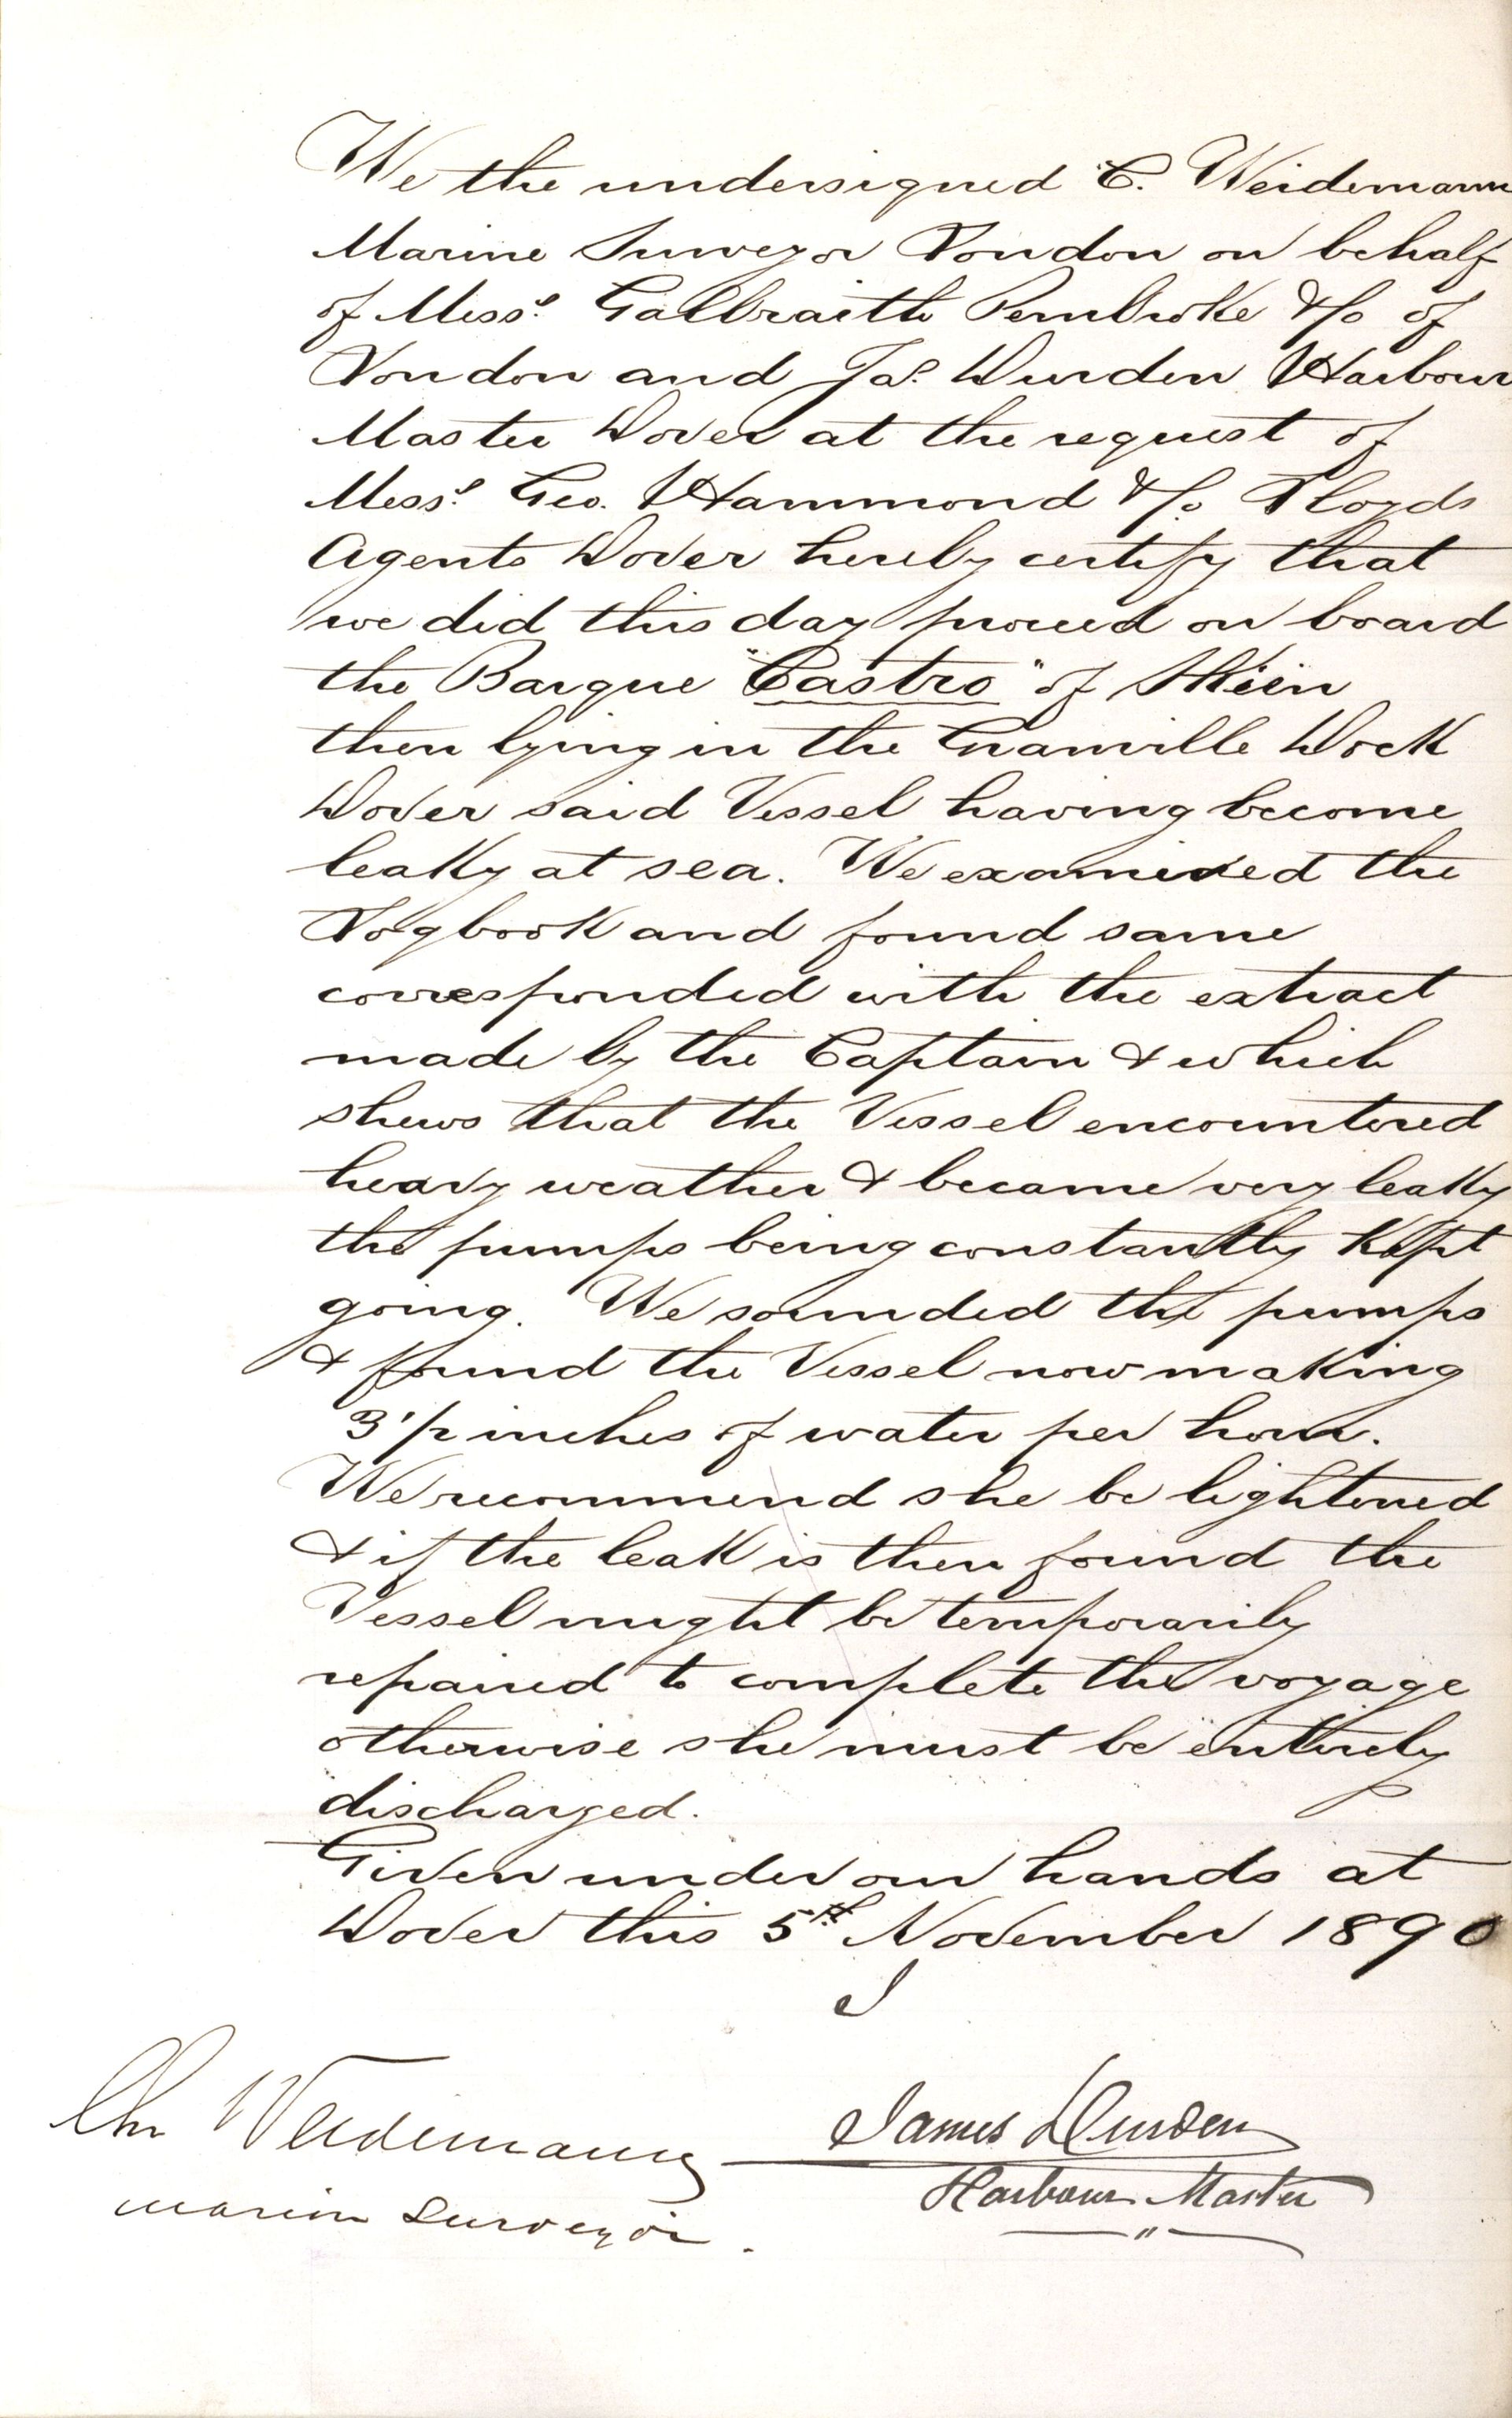 We the undersigned C. Weidemann
Marine Surveyor London on behalf
of Messs. Galbraith Pembroke & Co of
London and Jas. Durden Harbour
Master Dover at the request of
Messs. Geo. Hammond & Co. Lloyds
Agents Dover hereby certify that
we did this day proceed on board
the Barque "Castro" of Skien
then lying in the Granville Dock
Dover said Vessel having become
leaky at sea. We examined the
Logbook and found same
corresponded with the extract
made by the Captain & which
shews that the Vessel encountered
heavy weather & became very leaky
the pumps being constantly kept
going. We sounded the pumps
& found the Vessel now making
3 1/2 inches of water per hour.
We recommend she be lightened
& if the leak is then found the
Vessel might be temporarily
repaired to complete the voyage
otherwise she must be entirely
discharged.
Given under our hands at
Dover this 5th November 1890
Chr Weidemann
Marine Surveyor.
James Durden
Harbour Master